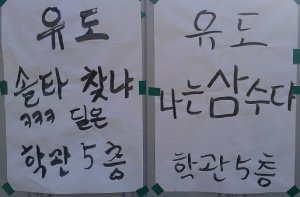 유도
솔타 찾냐
ㅋㅋㅋ 딜은
학관 5층
유도
나는 삼수다
학관 5층